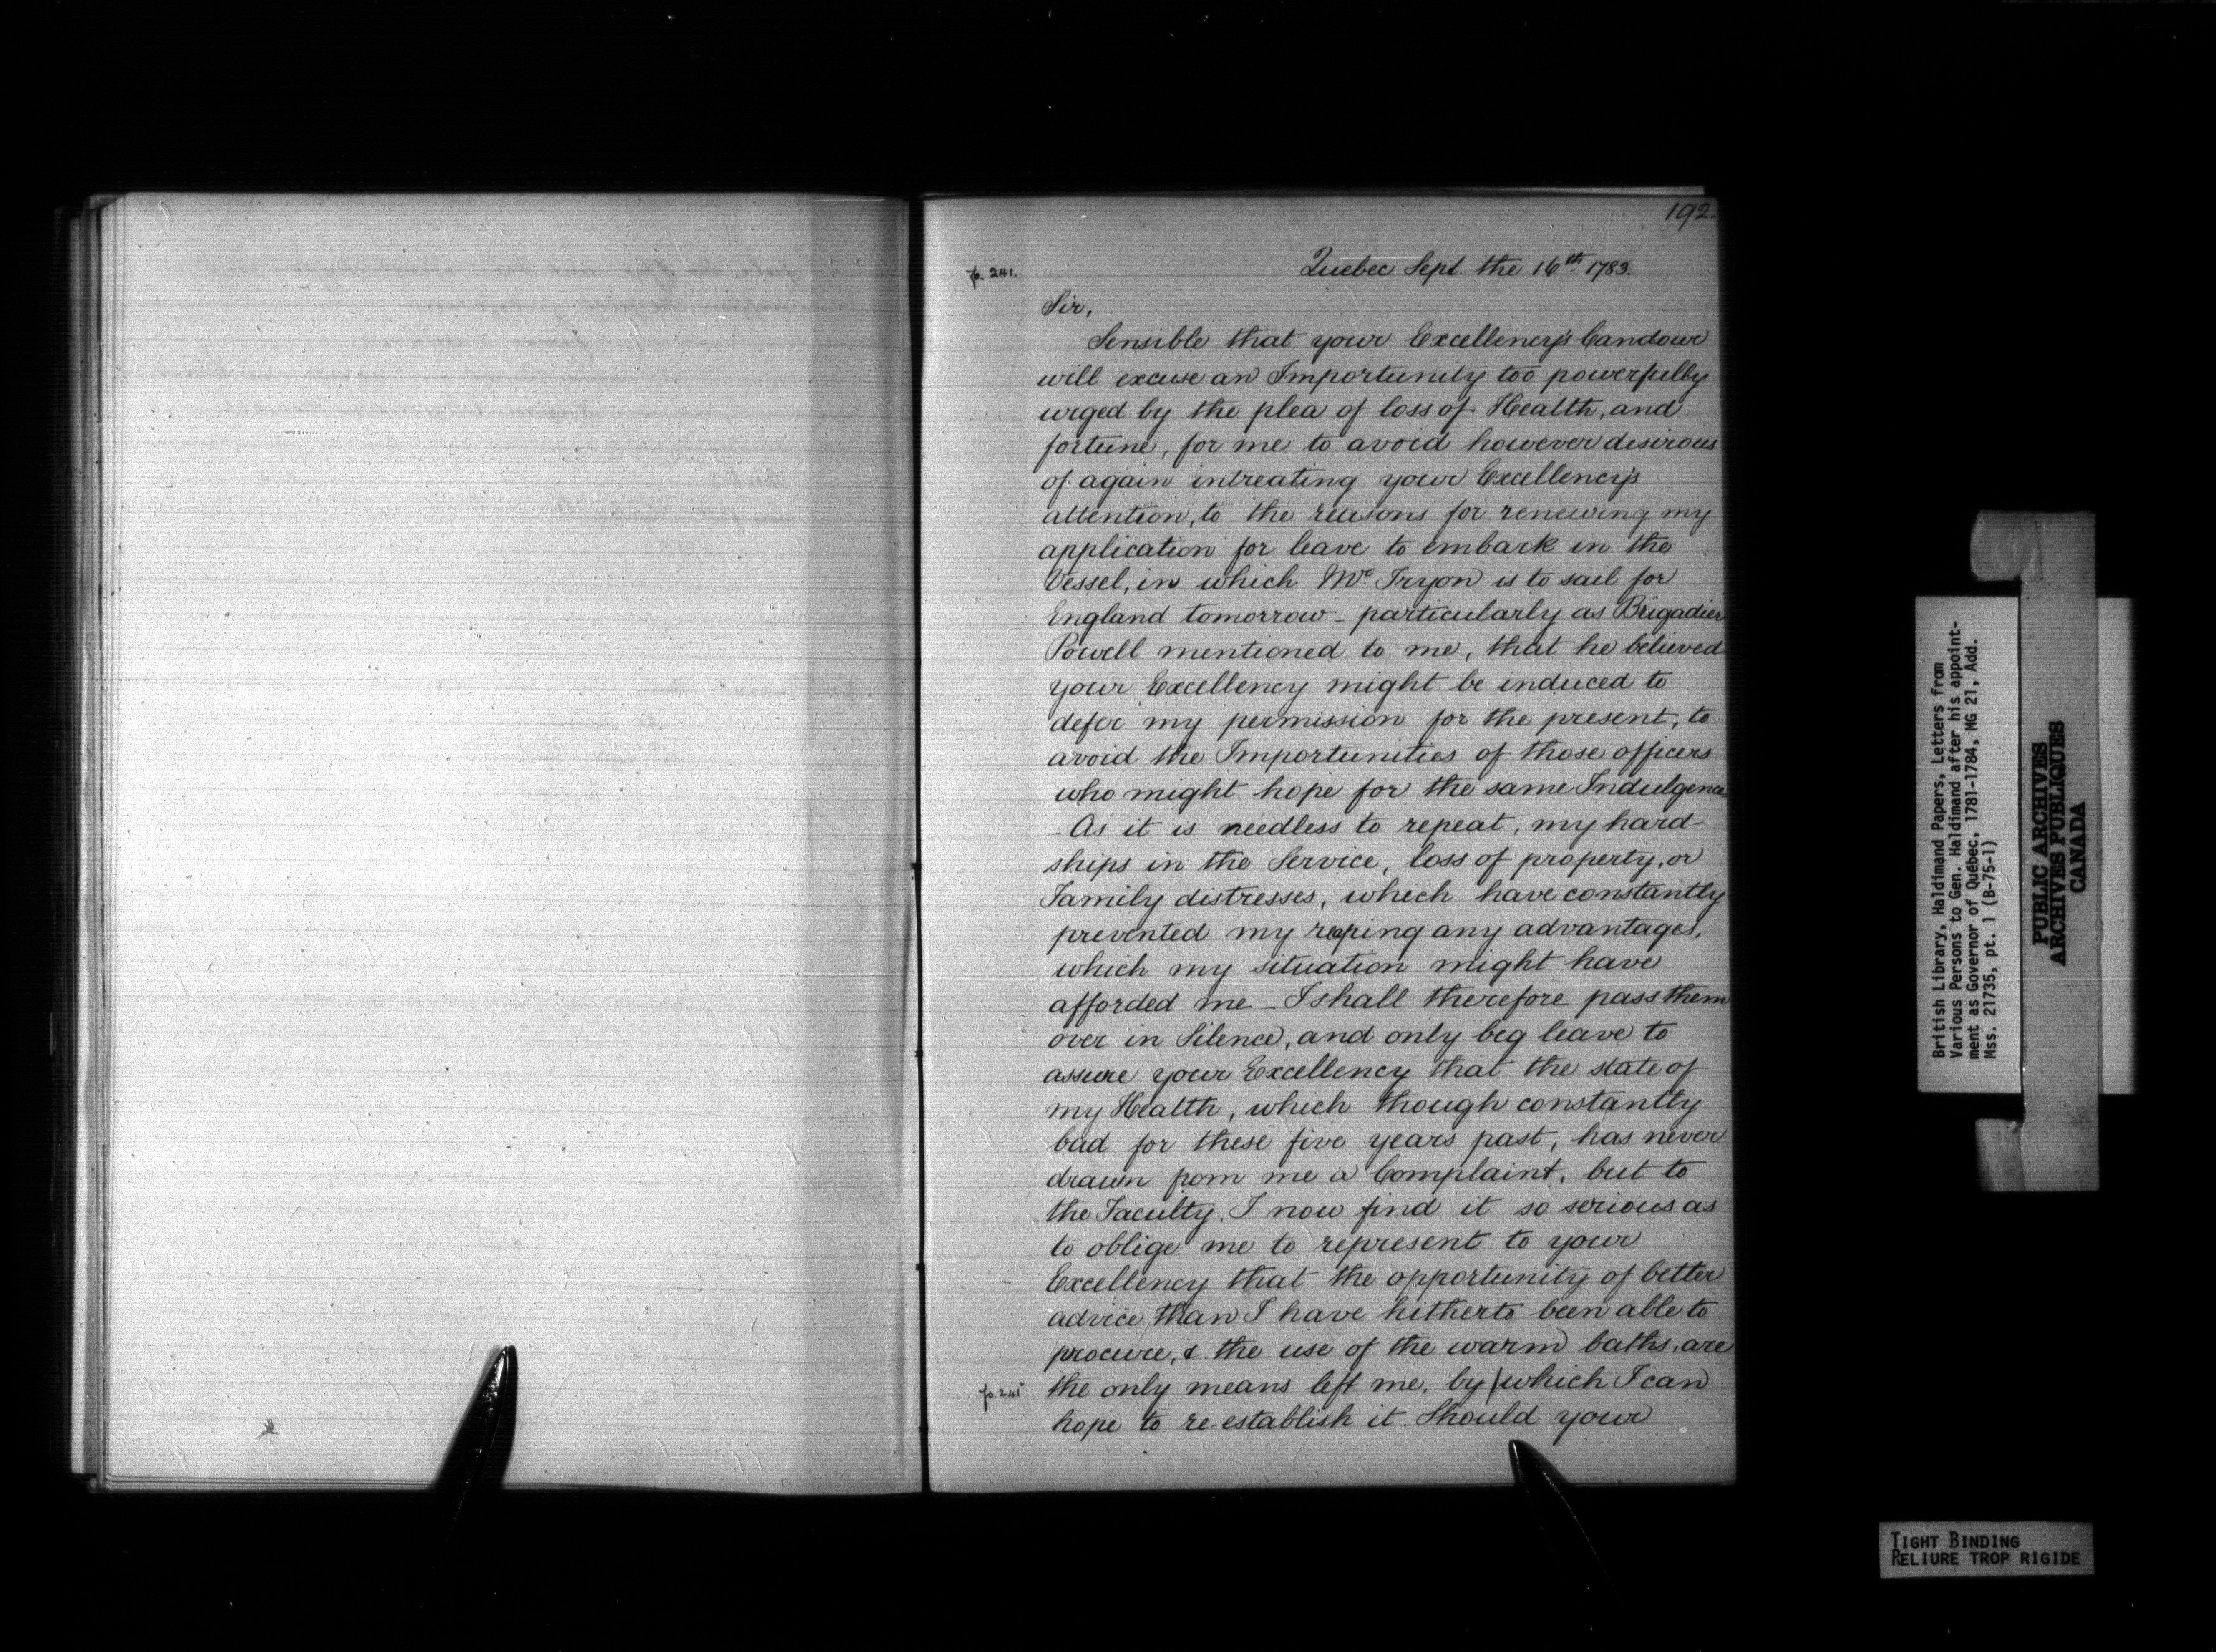 192.
p. 241.
Quebec Sept. the 16th 1783.
Sir,
Sensible that your Excellency's Candour
will excuse an Importunity too powerfully
urged by the plea of loss of Health, and
fortune, for me to avoid however desirous
of again intreating your Excellency's
attention, to the reasons for renewing my
application for leave to embark in the
Vessel, in which Mr Tryon is to sail for
England tomorrow - particularly as Brigadier
Powell mentioned to me, that he believed
your Excellency might be induced to
defer my permission for the present, to
avoid the Importunities of those officers
who might hope for the same Indulgence
- As it is needless to repeat, my hard-
ships in the Service, loss of property, or
Family distresses, which have constantly
prevented my reaping any advantages,
which my situation might have
afforded me - I shall therefore pass them
over in Silence, and only beg leave to
assure your Excellency that the state of
my Health, which though constantly
bad for these five years past, has never
drawn from me a Complaint, but to
the Faculty. I now find it so serious as
to oblige me to represent to your
Excellency that the opportunity of better
advice than I have hitherto been able to
procure, & the use of the warm baths, are
the only means left me, by / which I can
hope to re-establish it. Should your
British Library, Haldimand Papers, Letters from
Various Persons to Gen. Haldimand after his appoint-
ment as Governor of Québec, 1781-1784, MG 21, Add.
Mss. 21735, pt. 1 (B-75-1)
PUBLIC ARCHIVES
ARCHIVES PUBLIQUES
CANADA
TIGHT BINDING
RELIURE TROP RIGIDE